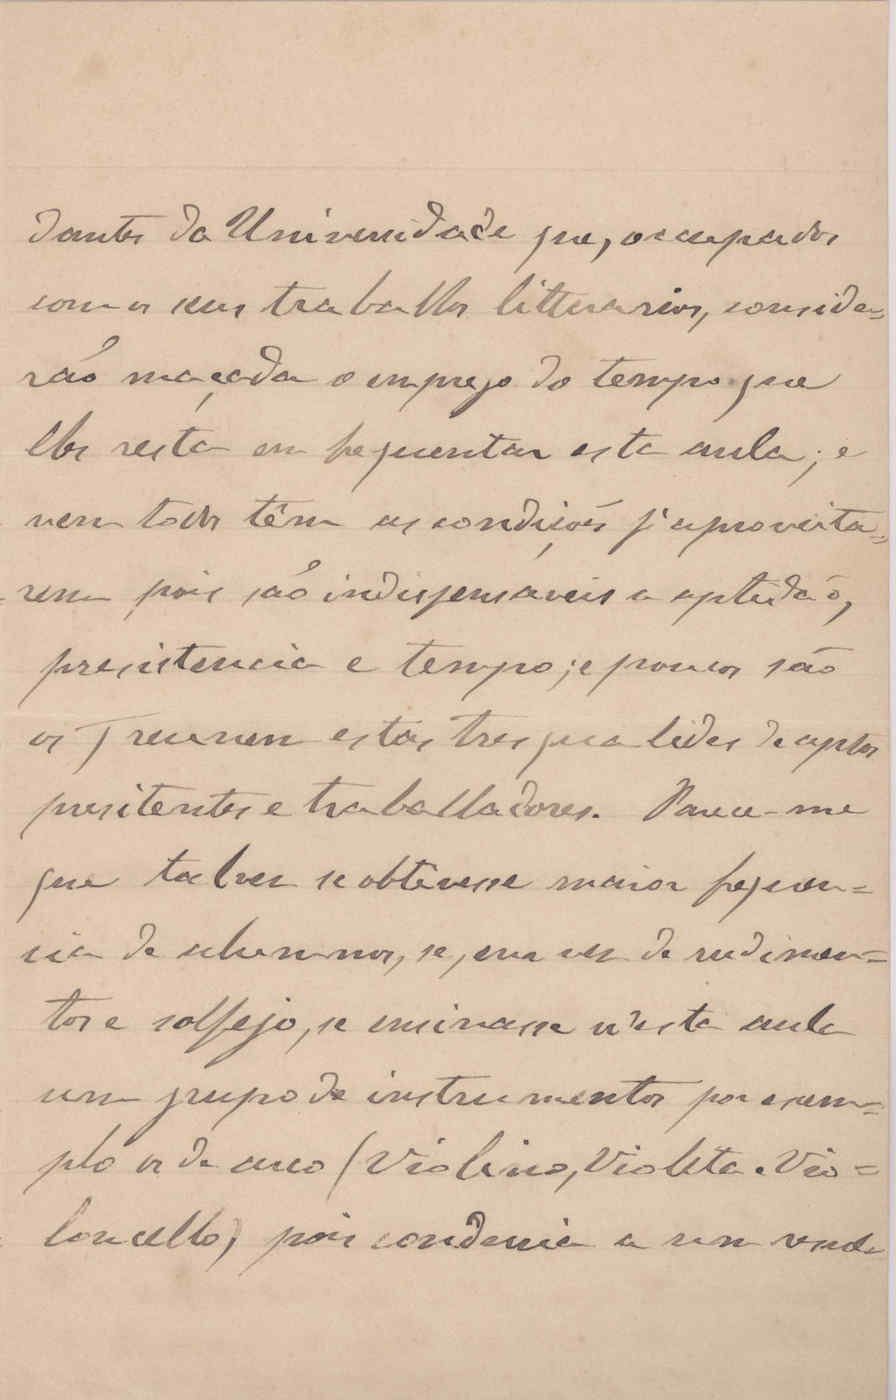 dantes da Universidade que, occupados
com os seus traballos litterarios, conside=
rão maçada o emprego do tempo que
lhes resta em frequentar esta aula; e
nem todos têm as condições p'aproveita=
rem pois são indispensaveis a aptidão,
presistencia e tempo; e poucos são
os q reunem estas tres qualides de aptos
presitentes e traballadores. Parece-me
que talvez se obtivesse maior frequen=
cia de alumnos, se, em vez de rudimen=
tos e solfejo, se ensinasse n'esta aula
um grupo de instrumentos por exem=
plo os de arco (Violino, Violeta e Vio=
loncello) pois conduzia a um